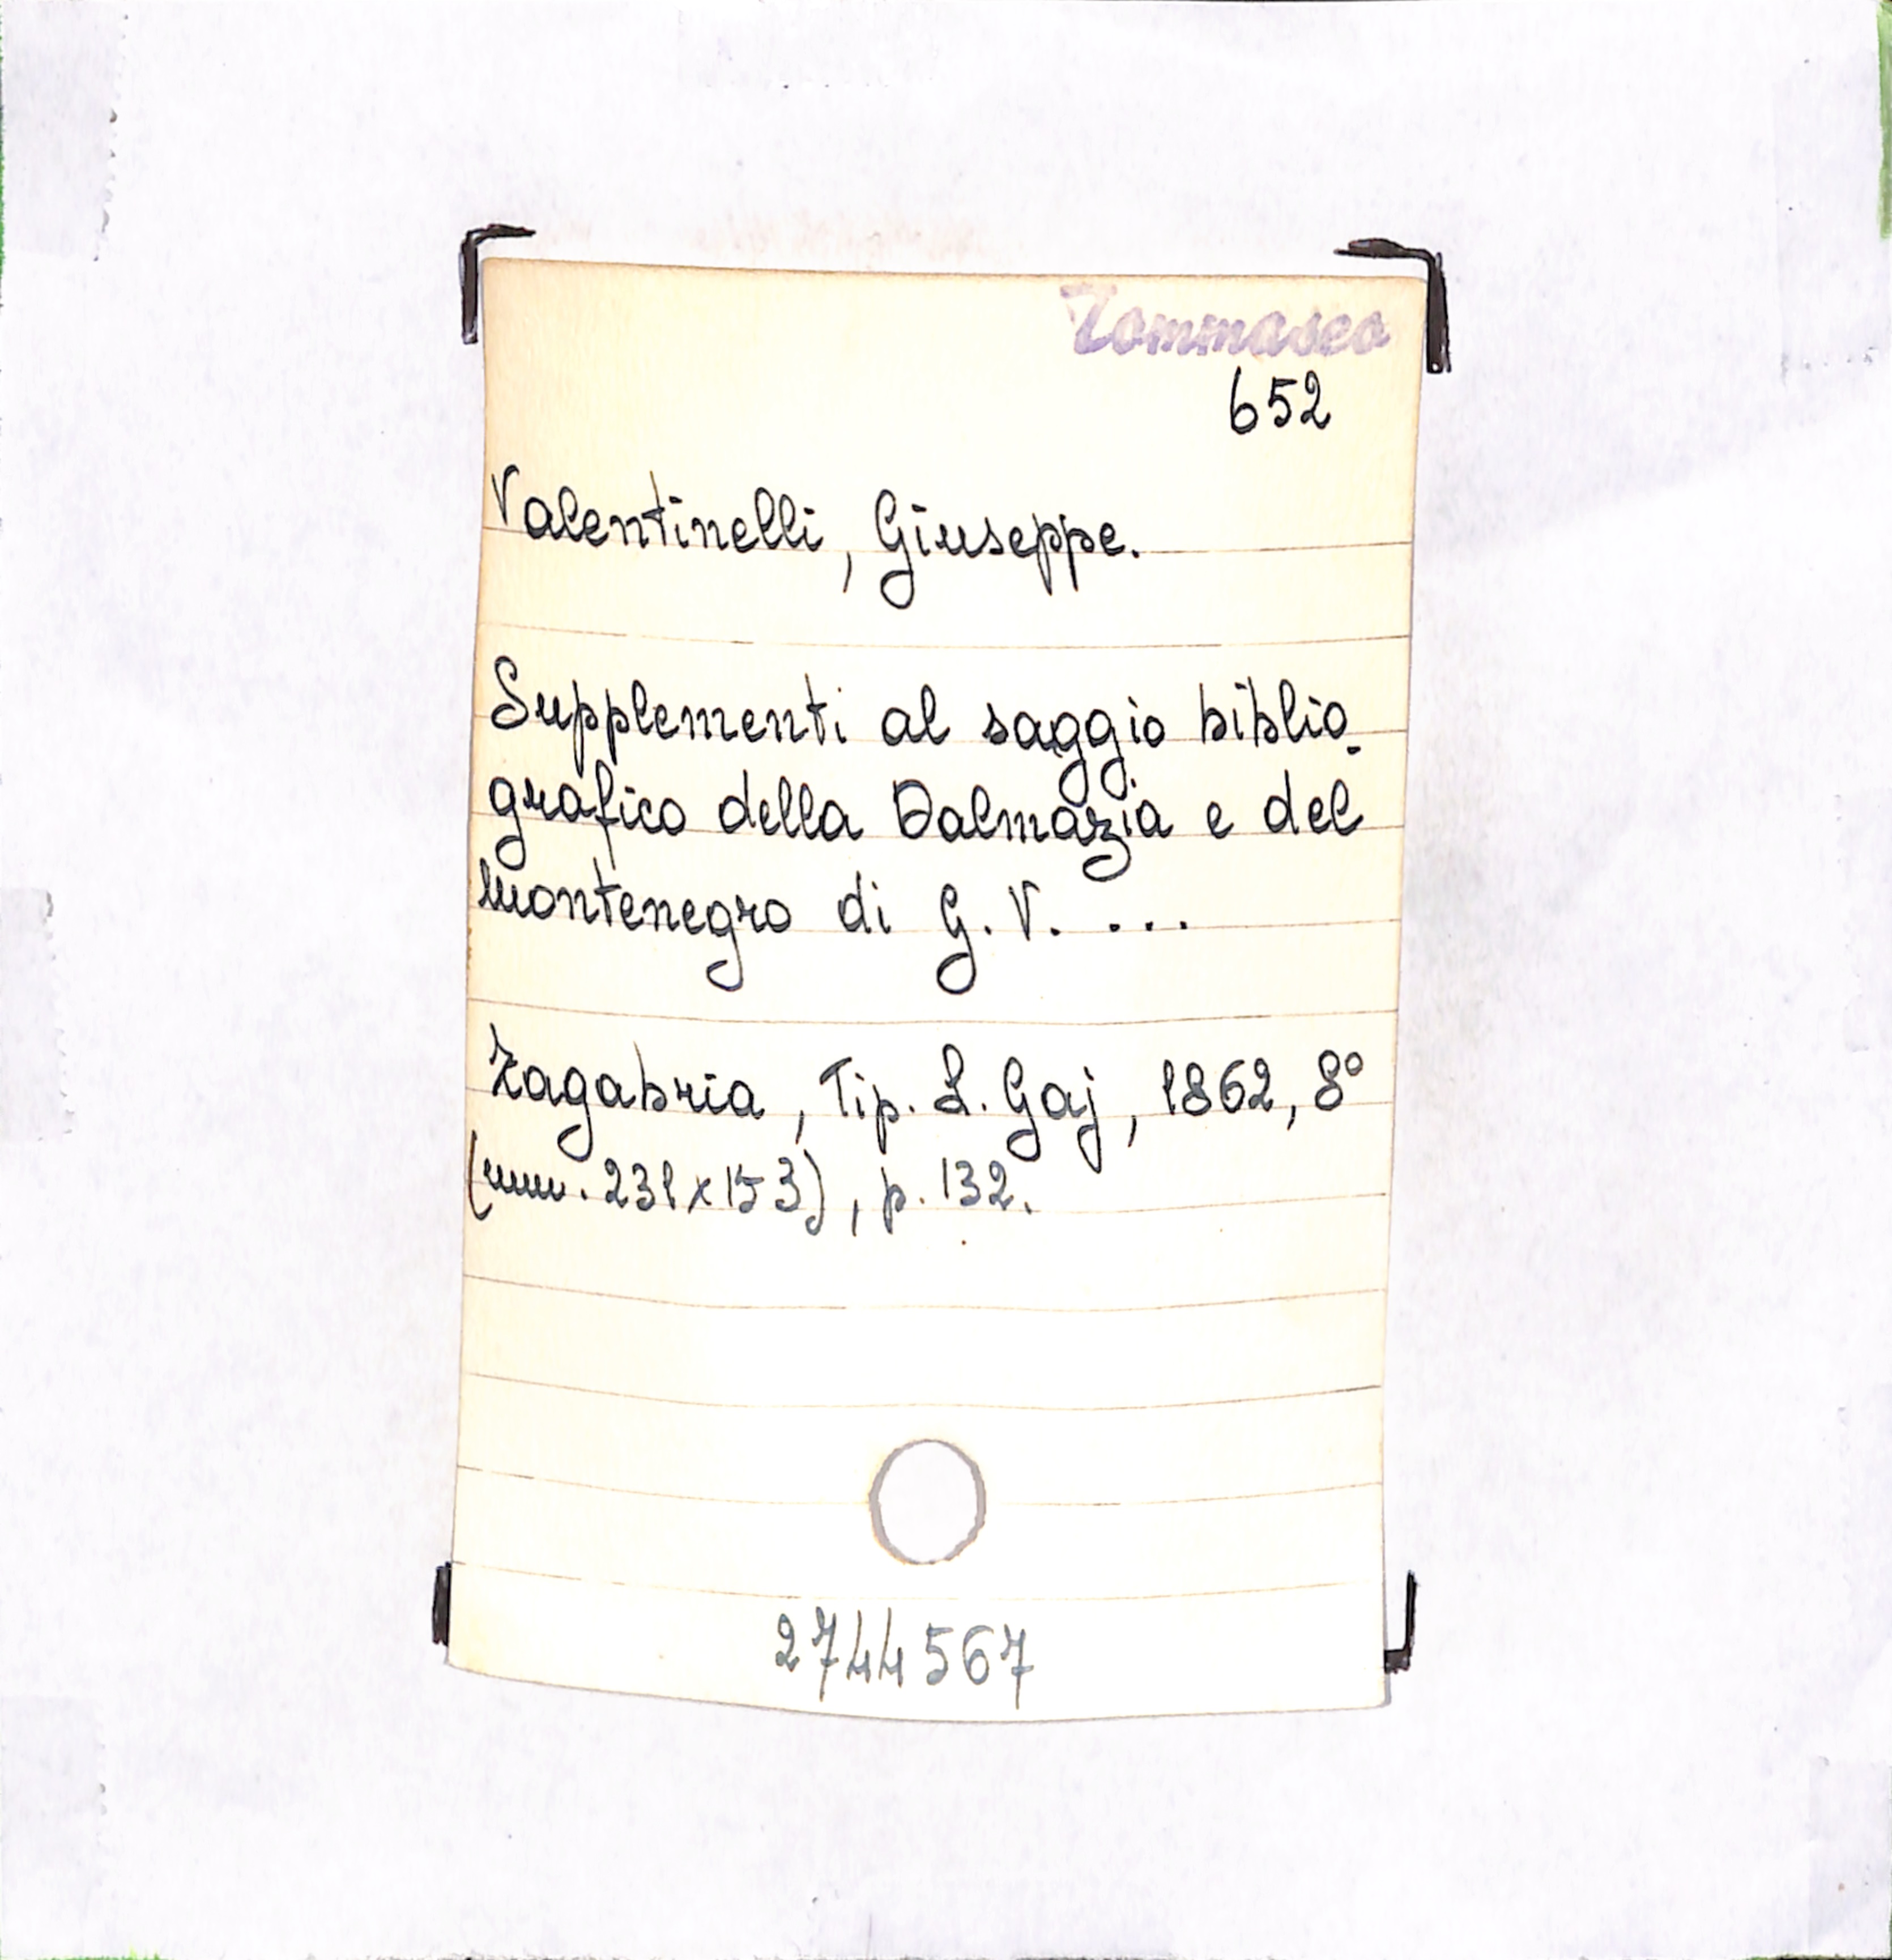 Tommaseo
652
Valentinelli, Giuseppe.
Supplementi al saggio biblio-
grafico della Dalmazia e del
Montenegro di G. V. ...
Zagabria, Tip. L. Gaj, 1862, 8°
(mm. 231x153), p. 132.
2744567